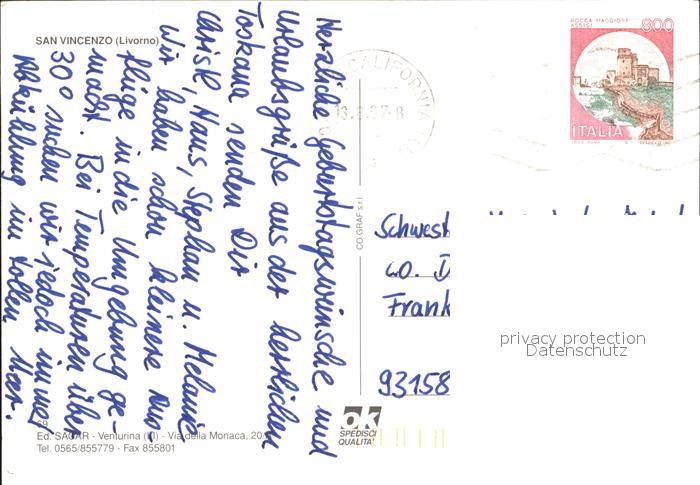 SAN VINCENZO (Livorno)
Herzliche Geburtstagswünsche und
Urlaubsgrüße aus der herrlichen
Toskana senden Dir
Christl, Hans, Stephan u. Melanie
Wir haben schon kleinere Aus-
flüge in die Umgebung ge-
macht. Bei Temperaturen über
30° suchen wir jedoch immer
Abkühlung im tollen Meer.
69
Ed. SAGAR - Venturina (LI) - Via della Monaca, 20/
Tel. 0565/855779 - Fax 855801
CO.GRAF s.r.l.
CALIFORNIA
13.8.97-8
ROCCA MAGGIORE
ASSISI
800
ITALIA
Schwest
c.o. D
Frank
93158
privacy protection
Datenschutz
ok
SPEDISCI
QUALITA'